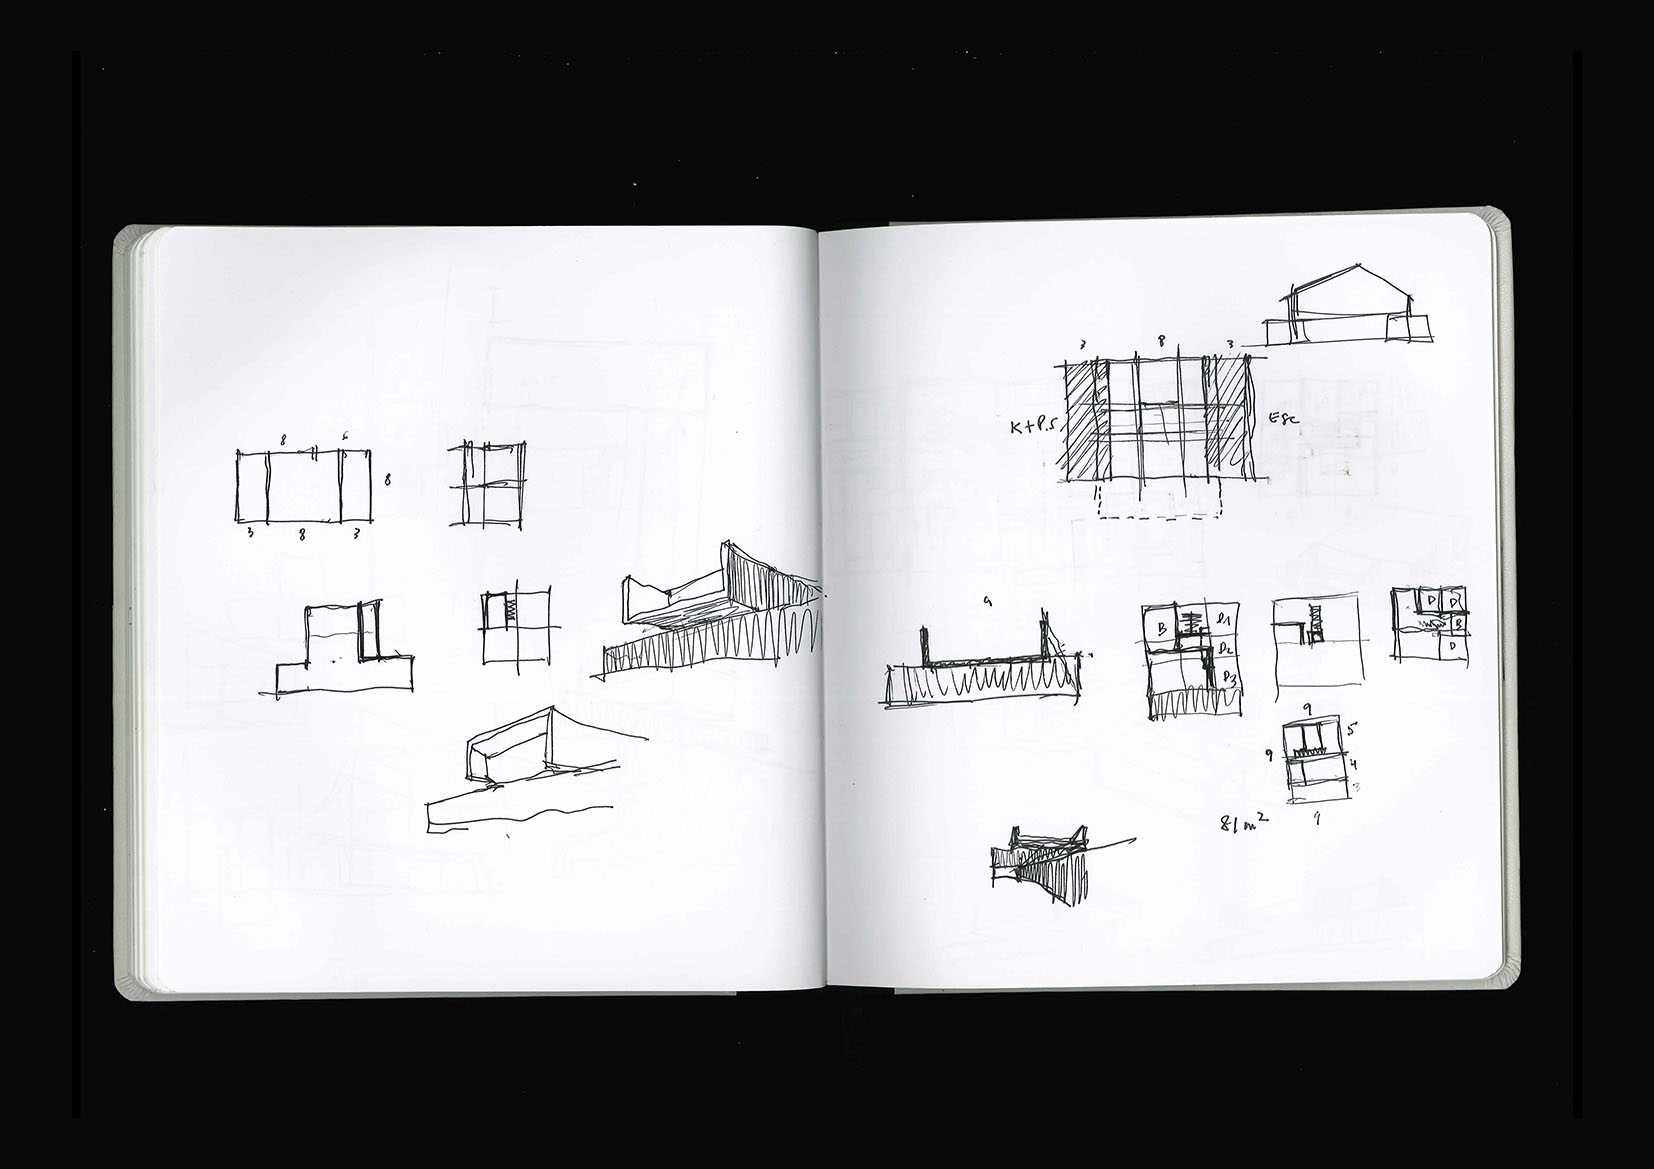 8
8
3 8 3
3 8 3
K+P.S.
Esc
9
B D1
D2
D3
D D
B
D
9
5
9
4
3
9
81 m²